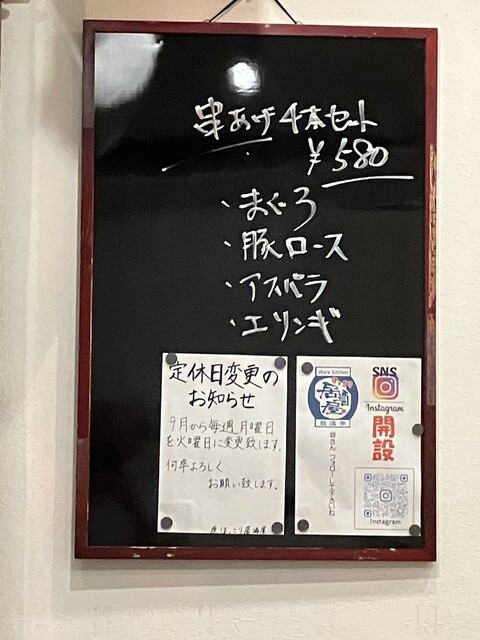 串あげ4本セット
¥580
・まぐろ
・豚ロース
・アスパラ
・エリンギ
定休日変更の
お知らせ
9月から毎週月曜日
を火曜日に変更致します。
何卒よろしく
お願い致します。
share kitchen
居酒屋
SNS
Instagram
開設
皆さんフォローして下さいね
Instagram